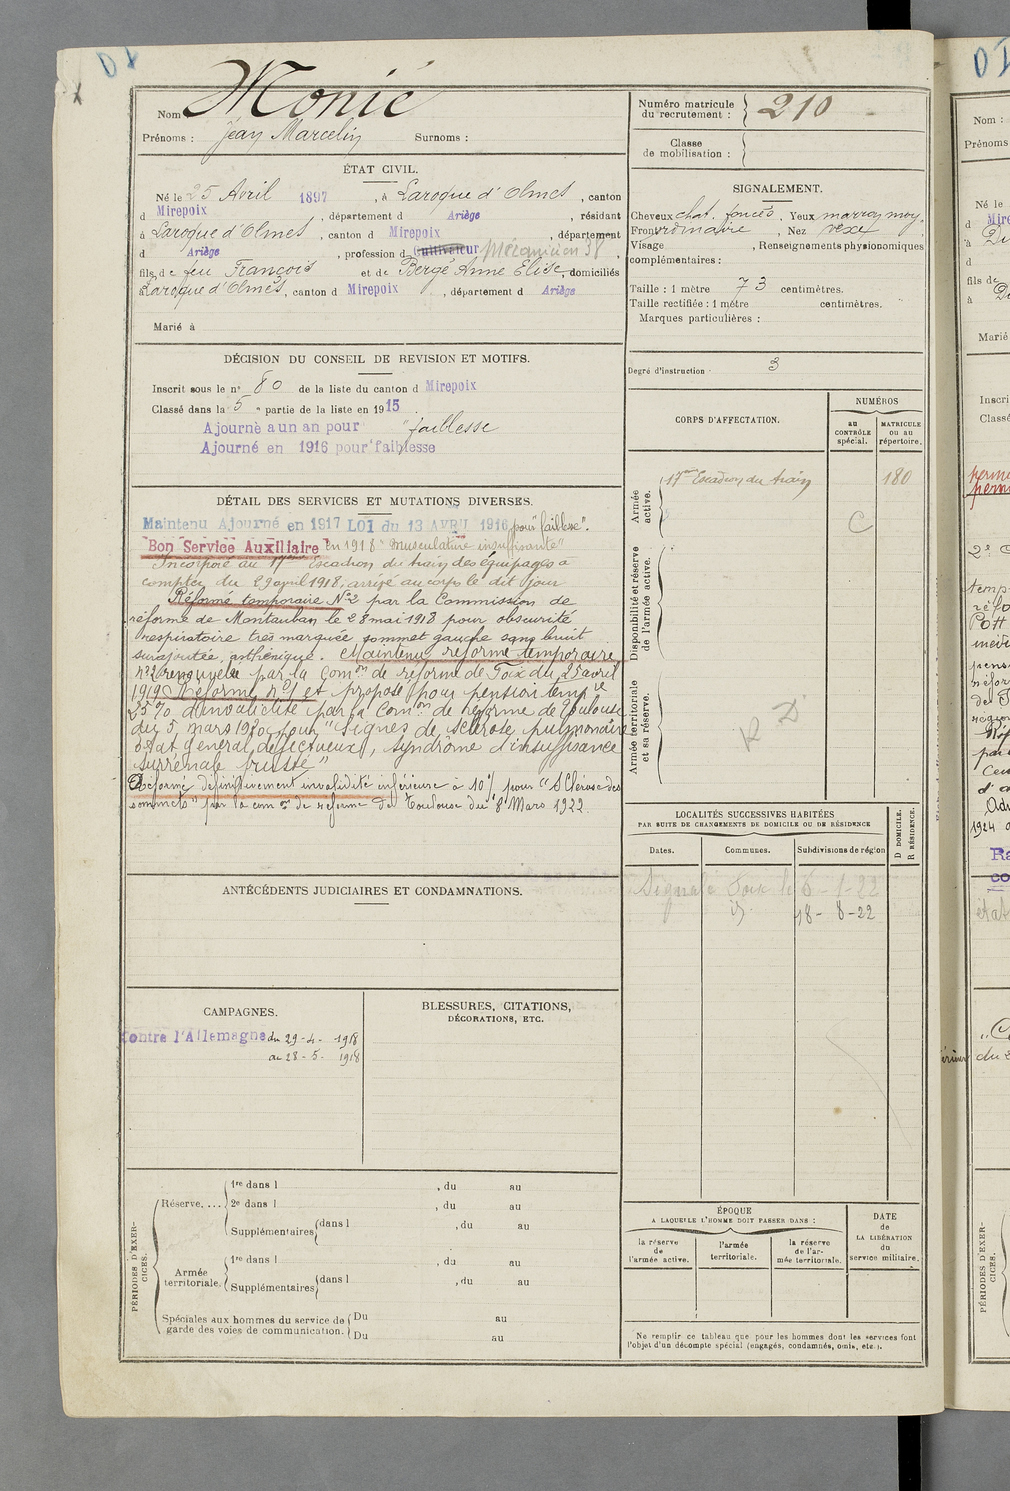 Nom Monié
Prénoms : Jean Marcelin Surnoms :
Numéro matricule du recrutement : 210
Classe de mobilisation :
ÉTAT CIVIL.
Né le 25 Avril 1897, à Laroque d'Olmes, canton
d Mirepoix, département d Ariège, résidant
à Laroque d'Olmes, canton d Mirepoix, département
d Ariège, profession d Cultivateur mécanicien 38,
fils de feu François et de Bergé Anne Elise, domiciliés
à Laroque d'Olmes, canton d Mirepoix, département d Ariège
Marié à
SIGNALEMENT.
Cheveux chat. foncés, Yeux marron moy.
Front ordinaire, Nez vexe
Visage , Renseignements physionomiques
complémentaires :
Taille : 1 mètre 73 centimètres.
Taille rectifiée : 1 mètre centimètres.
Marques particulières :
Degré d'instruction 3
DÉCISION DU CONSEIL DE REVISION ET MOTIFS.
Inscrit sous le n° 80 de la liste du canton d Mirepoix
Classé dans la 5e partie de la liste en 1915.
Ajourné a un an pour "faiblesse
Ajourné en 1916 pour "faiblesse
DÉTAIL DES SERVICES ET MUTATIONS DIVERSES.
Maintenu Ajourné en 1917 LOI du 13 AVRIL 1916 pour "faiblesse".
Bon Service Auxiliaire en 1918 "musculature insuffisante"
Incorporé au 17eme Escadron du train des équipages à
compter du 29 avril 1918, arrivé au corps le dit jour
Réformé temporaire N°2 par la Commission de
réforme de Montauban le 28 mai 1918 pour obscurité
respiratoire très marquée sommet gauche sans bruit
surajoutée, asthénique. Maintenu réformé temporaire
n°2 renouvelée par la Comon de réforme de Foix du 25 avril
1919 Réformé n°1 et proposé pour pension tempre
25% d'invalidité par la Comon de Réforme de Toulouse
du 5 mars 1920 pour "signes de sclérose pulmonaire
État général défectueux, syndrome d'insuffisance
surrénale fruste"
Réformé définitivement invalidité inférieure à 10% pour "Sclérose des
sommets" par la comon de réforme de Toulouse du 8 Mars 1922.
CORPS D'AFFECTATION.
NUMÉROS
au CONTRÔLE spécial.
MATRICULE ou au répertoire.
Armée active.
17eme Escadron du train 180
C
Disponibilité et réserve de l'armée active.
Armée territoriale et sa réserve.
R D
LOCALITÉS SUCCESSIVES HABITÉES
PAR SUITE DE CHANGEMENTS DE DOMICILE OU DE RÉSIDENCE
D DOMICILE.
R RÉSIDENCE.
Dates. Communes. Subdivisions de région
Signalé Foix le 6-1-22
18-8-22
ANTÉCÉDENTS JUDICIAIRES ET CONDAMNATIONS.
CAMPAGNES.
Contre l'Allemagne du 29-4-1918
au 28-5-1918
BLESSURES, CITATIONS,
DÉCORATIONS, ETC.
PÉRIODES D'EXERCICES.
Réserve.... 1re dans l , du au
2e dans l , du au
Supplémentaires dans l , du au
Armée territoriale. 1re dans l , du au
Supplémentaires dans l , du au
Spéciales aux hommes du service de garde des voies de communication. Du au
Du au
ÉPOQUE
A LAQUELLE L'HOMME DOIT PASSER DANS :
la réserve de l'armée active.
l'armée territoriale.
la réserve de l'armée territoriale.
DATE de LA LIBÉRATION du service militaire.
Ne remplir ce tableau que pour les hommes dont les services font
l'objet d'un décompte spécial (engagés, condamnés, omis, etc.).